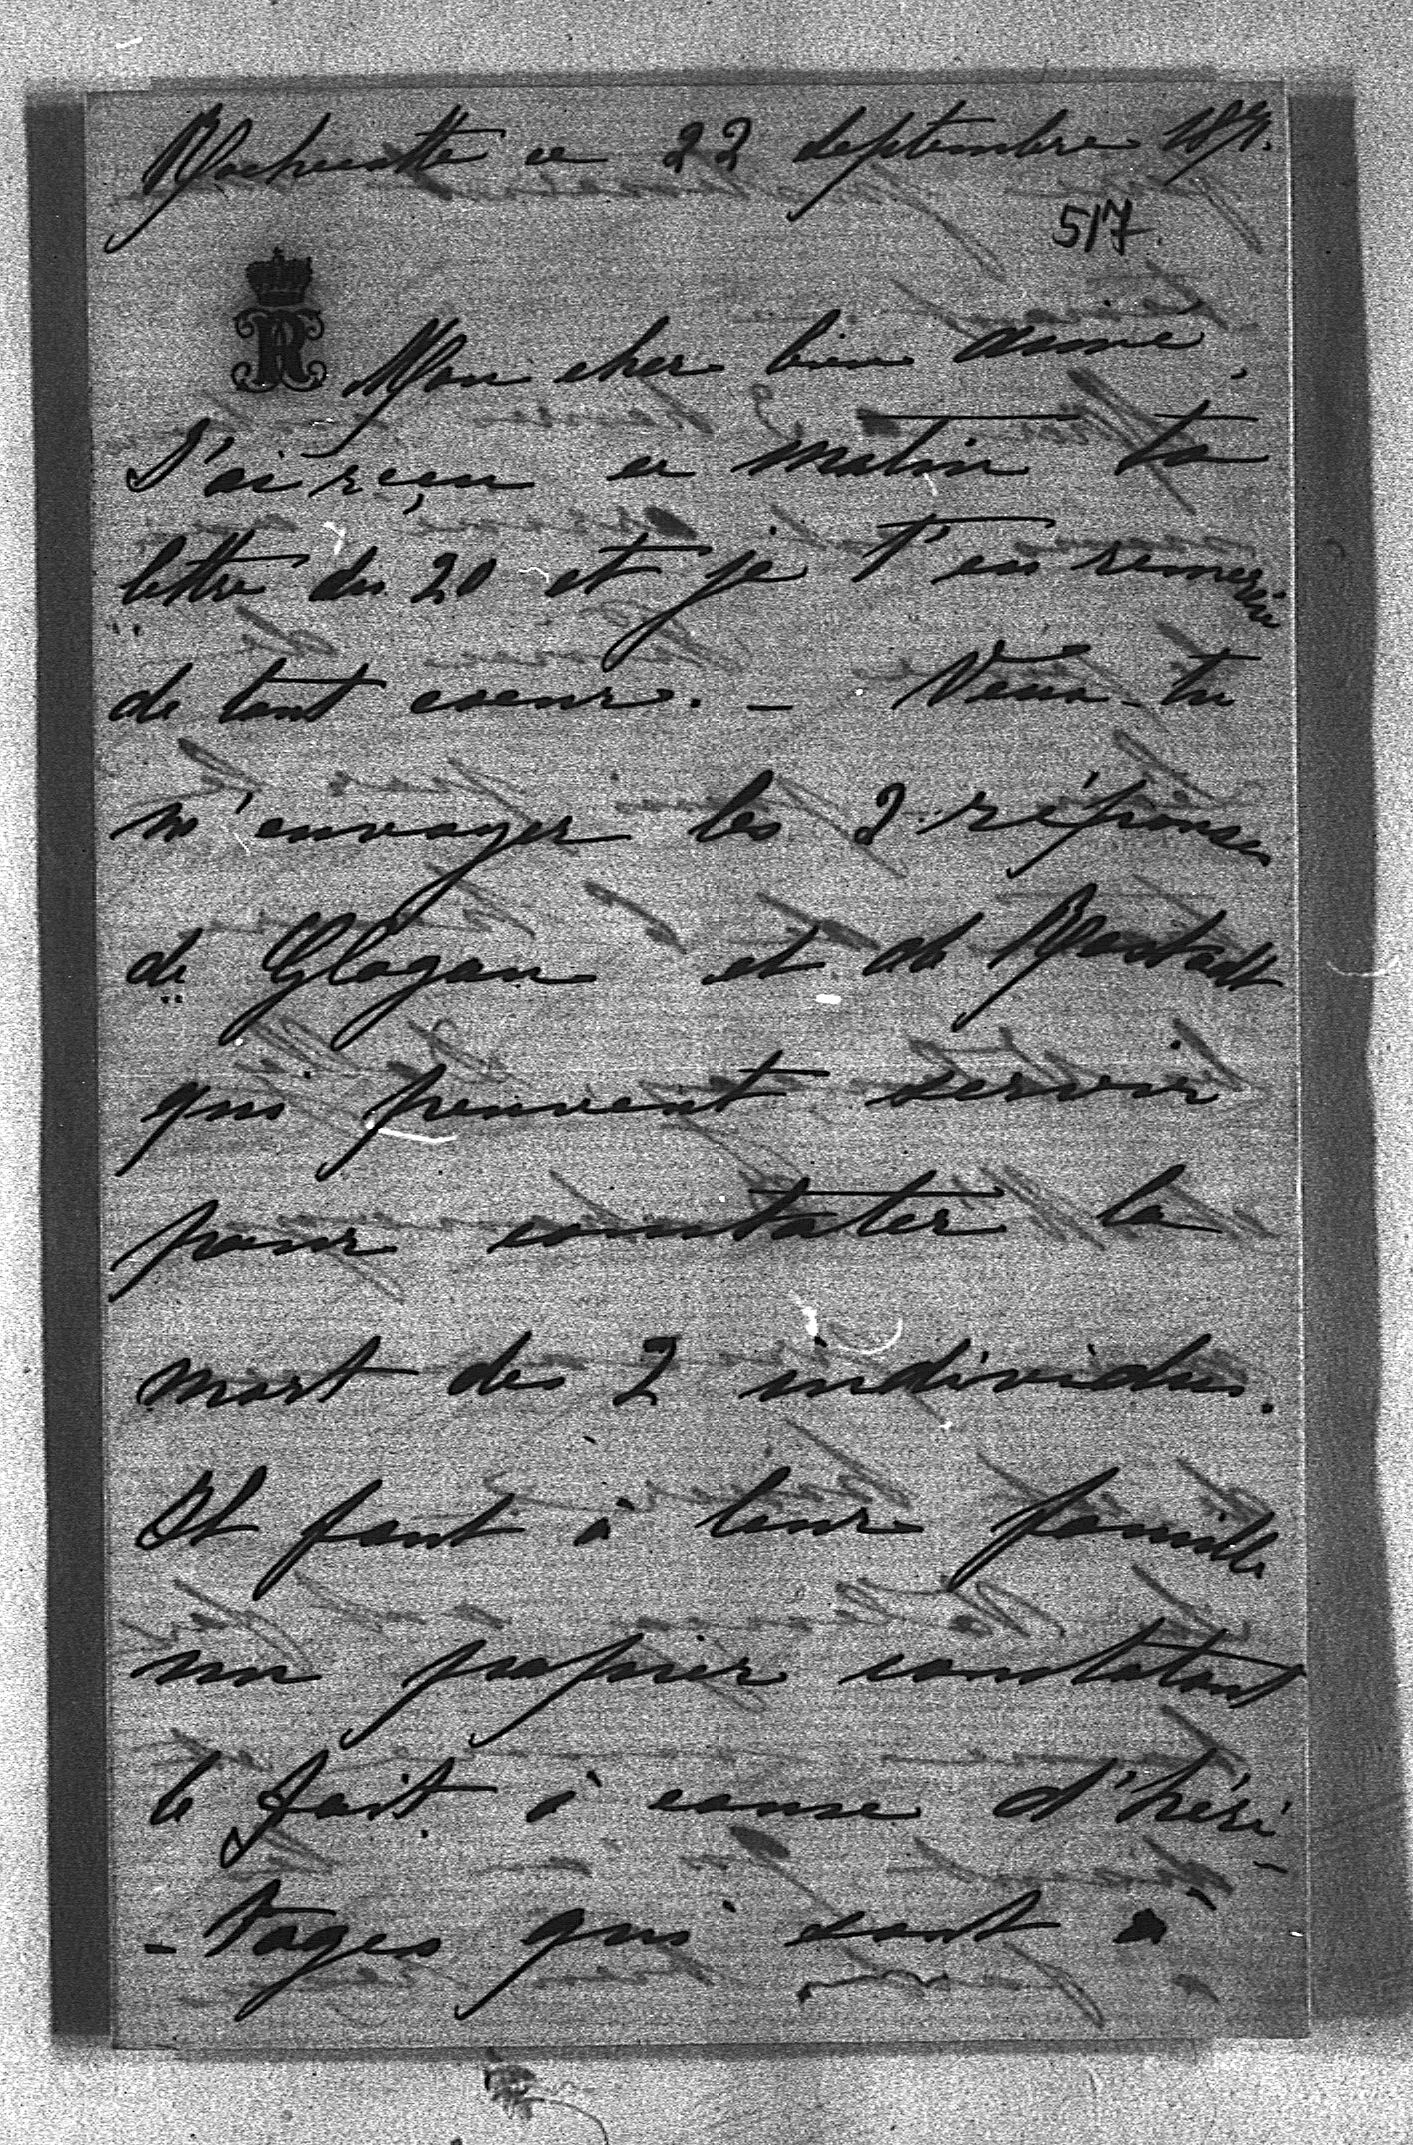 Rochecotte ce 22 septembre 1871.
517.
R
Mon cher bien aimé,
J'ai reçu ce matin ta
lettre du 20 et je t'en remercie
de tout coeur. – Veux-tu
m'envoyer les 2 réponses
de Glogau et de Rastadt
qui peuvent servir
pour constater la
mort des 2 individus.
Il faut à leur famille
un papier constatant
le fait à cause d'héri-
-tages qui sont à